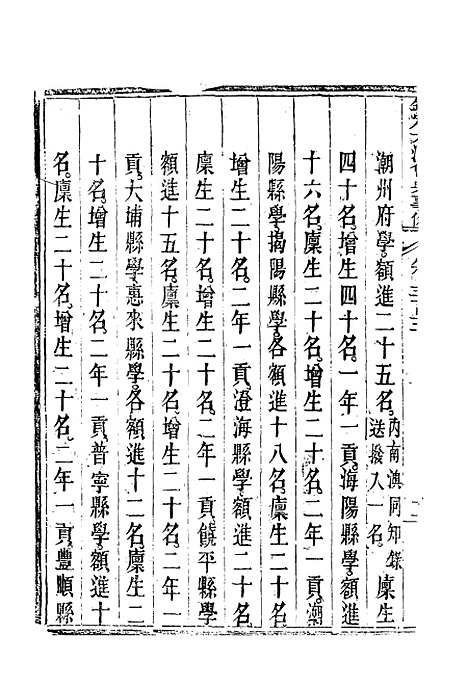 潮州府學。額進二十五名。內南澳同知錄送撥入一名。廩生
四十名。增生四十名。一年一貢。海陽縣學。額進
十六名。廩生二十名。增生二十名。二年一貢。潮
陽縣學。揭陽縣學。各額進十八名。廩生二十名。
增生二十名。二年一貢。澄海縣學。額進二十名。
廩生二十名。增生二十名。二年一貢。饒平縣學。
額進十五名。廩生二十名。增生二十名。二年一
貢。大埔縣學。惠來縣學。各額進十二名。廩生二
十名。增生二十名。二年一貢。普寧縣學。額進十
名。廩生二十名。增生二十名。二年一貢。豐順縣